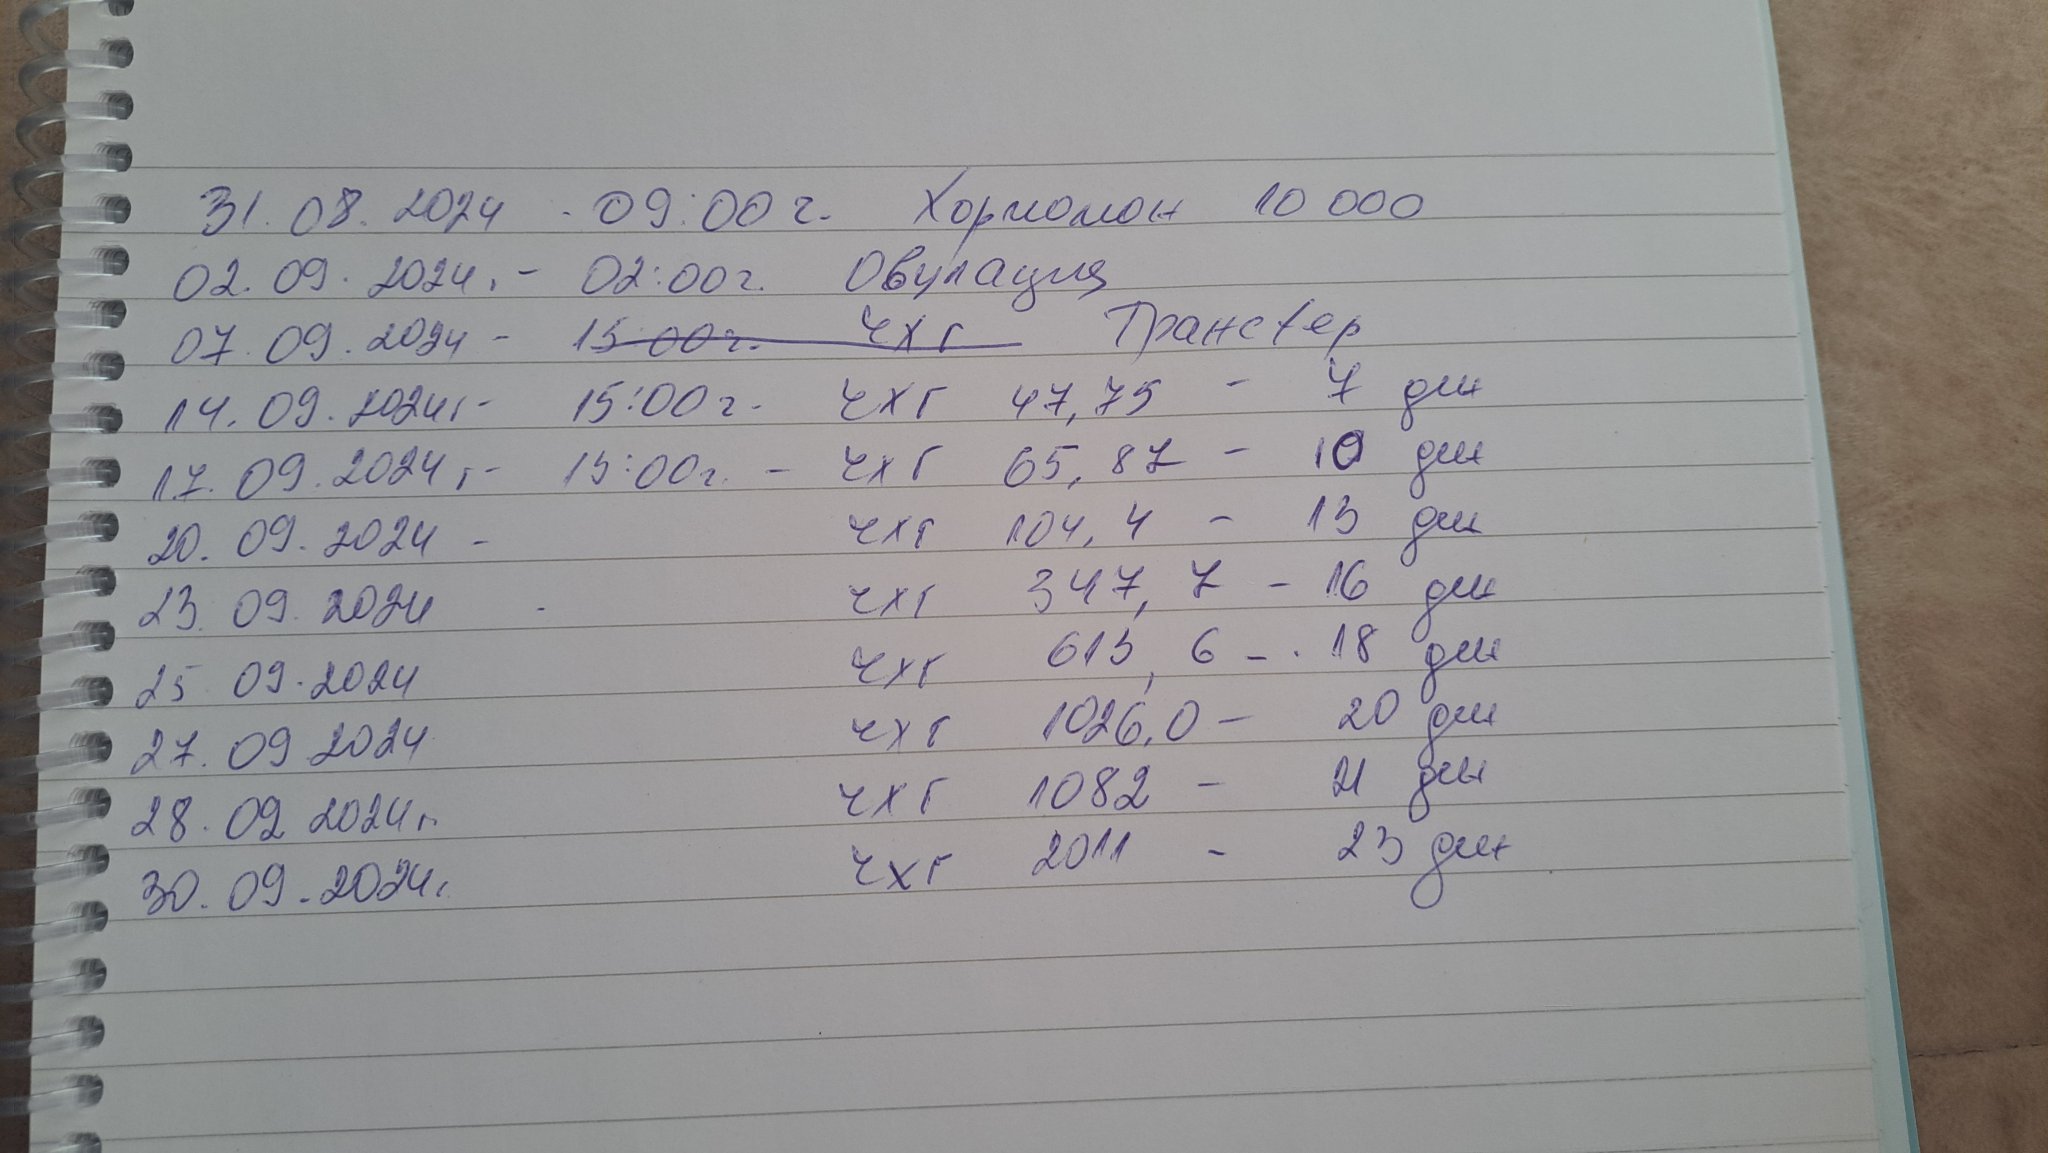 31.08.2024 - 09:00г. Хормомон 10 000
02.09.2024.- 02:00г. Овулация
07.09.2024 - 15:00г. ЧХГ Трансфер
14.09.2024г- 15:00г. ЧХГ 47,75 - 7 дни
17.09.2024г.- 15:00г. - ЧХГ 65,87 - 10 дни
20.09.2024 - ЧХГ 104,4 - 13 дни
23.09.2024 - ЧХГ 347,7 - 16 дни
25 09.2024 ЧХГ 613,6 - 18 дни
27.09 2024 ЧХГ 1026,0 - 20 дни
28.09 2024г. ЧХГ 1082 - 21 дни
30.09.2024г. ЧХГ 2011 - 23 дни